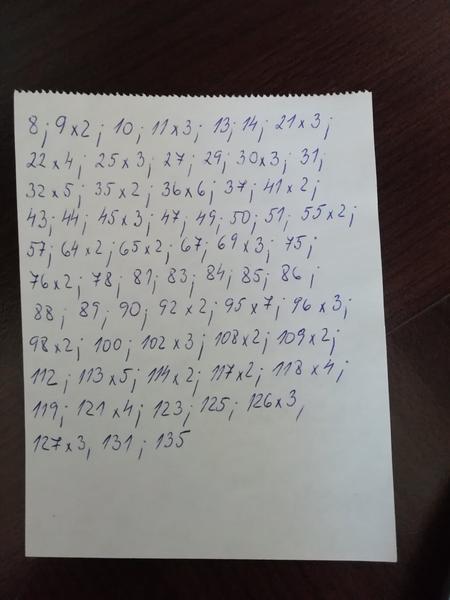 8; 9x2; 10; 11x3; 13; 14; 21x3;
22x4; 25x3; 27; 29; 30x3; 31;
32x5; 35x2; 36x6; 37; 41x2;
43; 44; 45x3; 47; 49; 50; 51; 55x2;
57; 64x2; 65x2; 67; 69x3; 75;
76x2; 78; 81; 83; 84; 85; 86;
88; 89; 90; 92x2; 95x7; 96x3;
98x2; 100; 102x3; 108x2; 109x2;
112; 113x5; 114x2; 117x2; 118x4;
119; 121x4; 123; 125; 126x3,
127x3, 131; 135